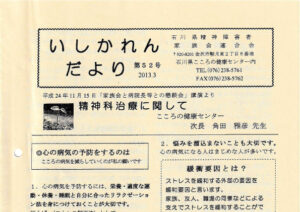 いしかれん
だより
第52号
2013.3
石川県精神障害者
家族会連合会
石川県こころの健康センター内
TEL(076)238-5761
FAX(076)238-5762
平成24年11月15日「家族会と病院長等との懇談会」講演より
精神科治療に関して
こころの健康センター
次長 角田 雅彦 先生
◎心の病気の予防をするのは
こころの病気を減らしていくのが私の願いです
1．心の病気を予防するには、栄養・適度な運
動・休養・睡眠と自分に合ったリラクゼーショ
ン法を身につけておくことが大切です。
2．悩みを溜込まないことも大切です。
心の病気になる人はまじめな人が多いです。
緩衝要因とは？
ストレスを緩和する外部の要因を
緩和要因と言います。
家族、友人、職場の同僚などによる
支えでストレスを緩和することがで